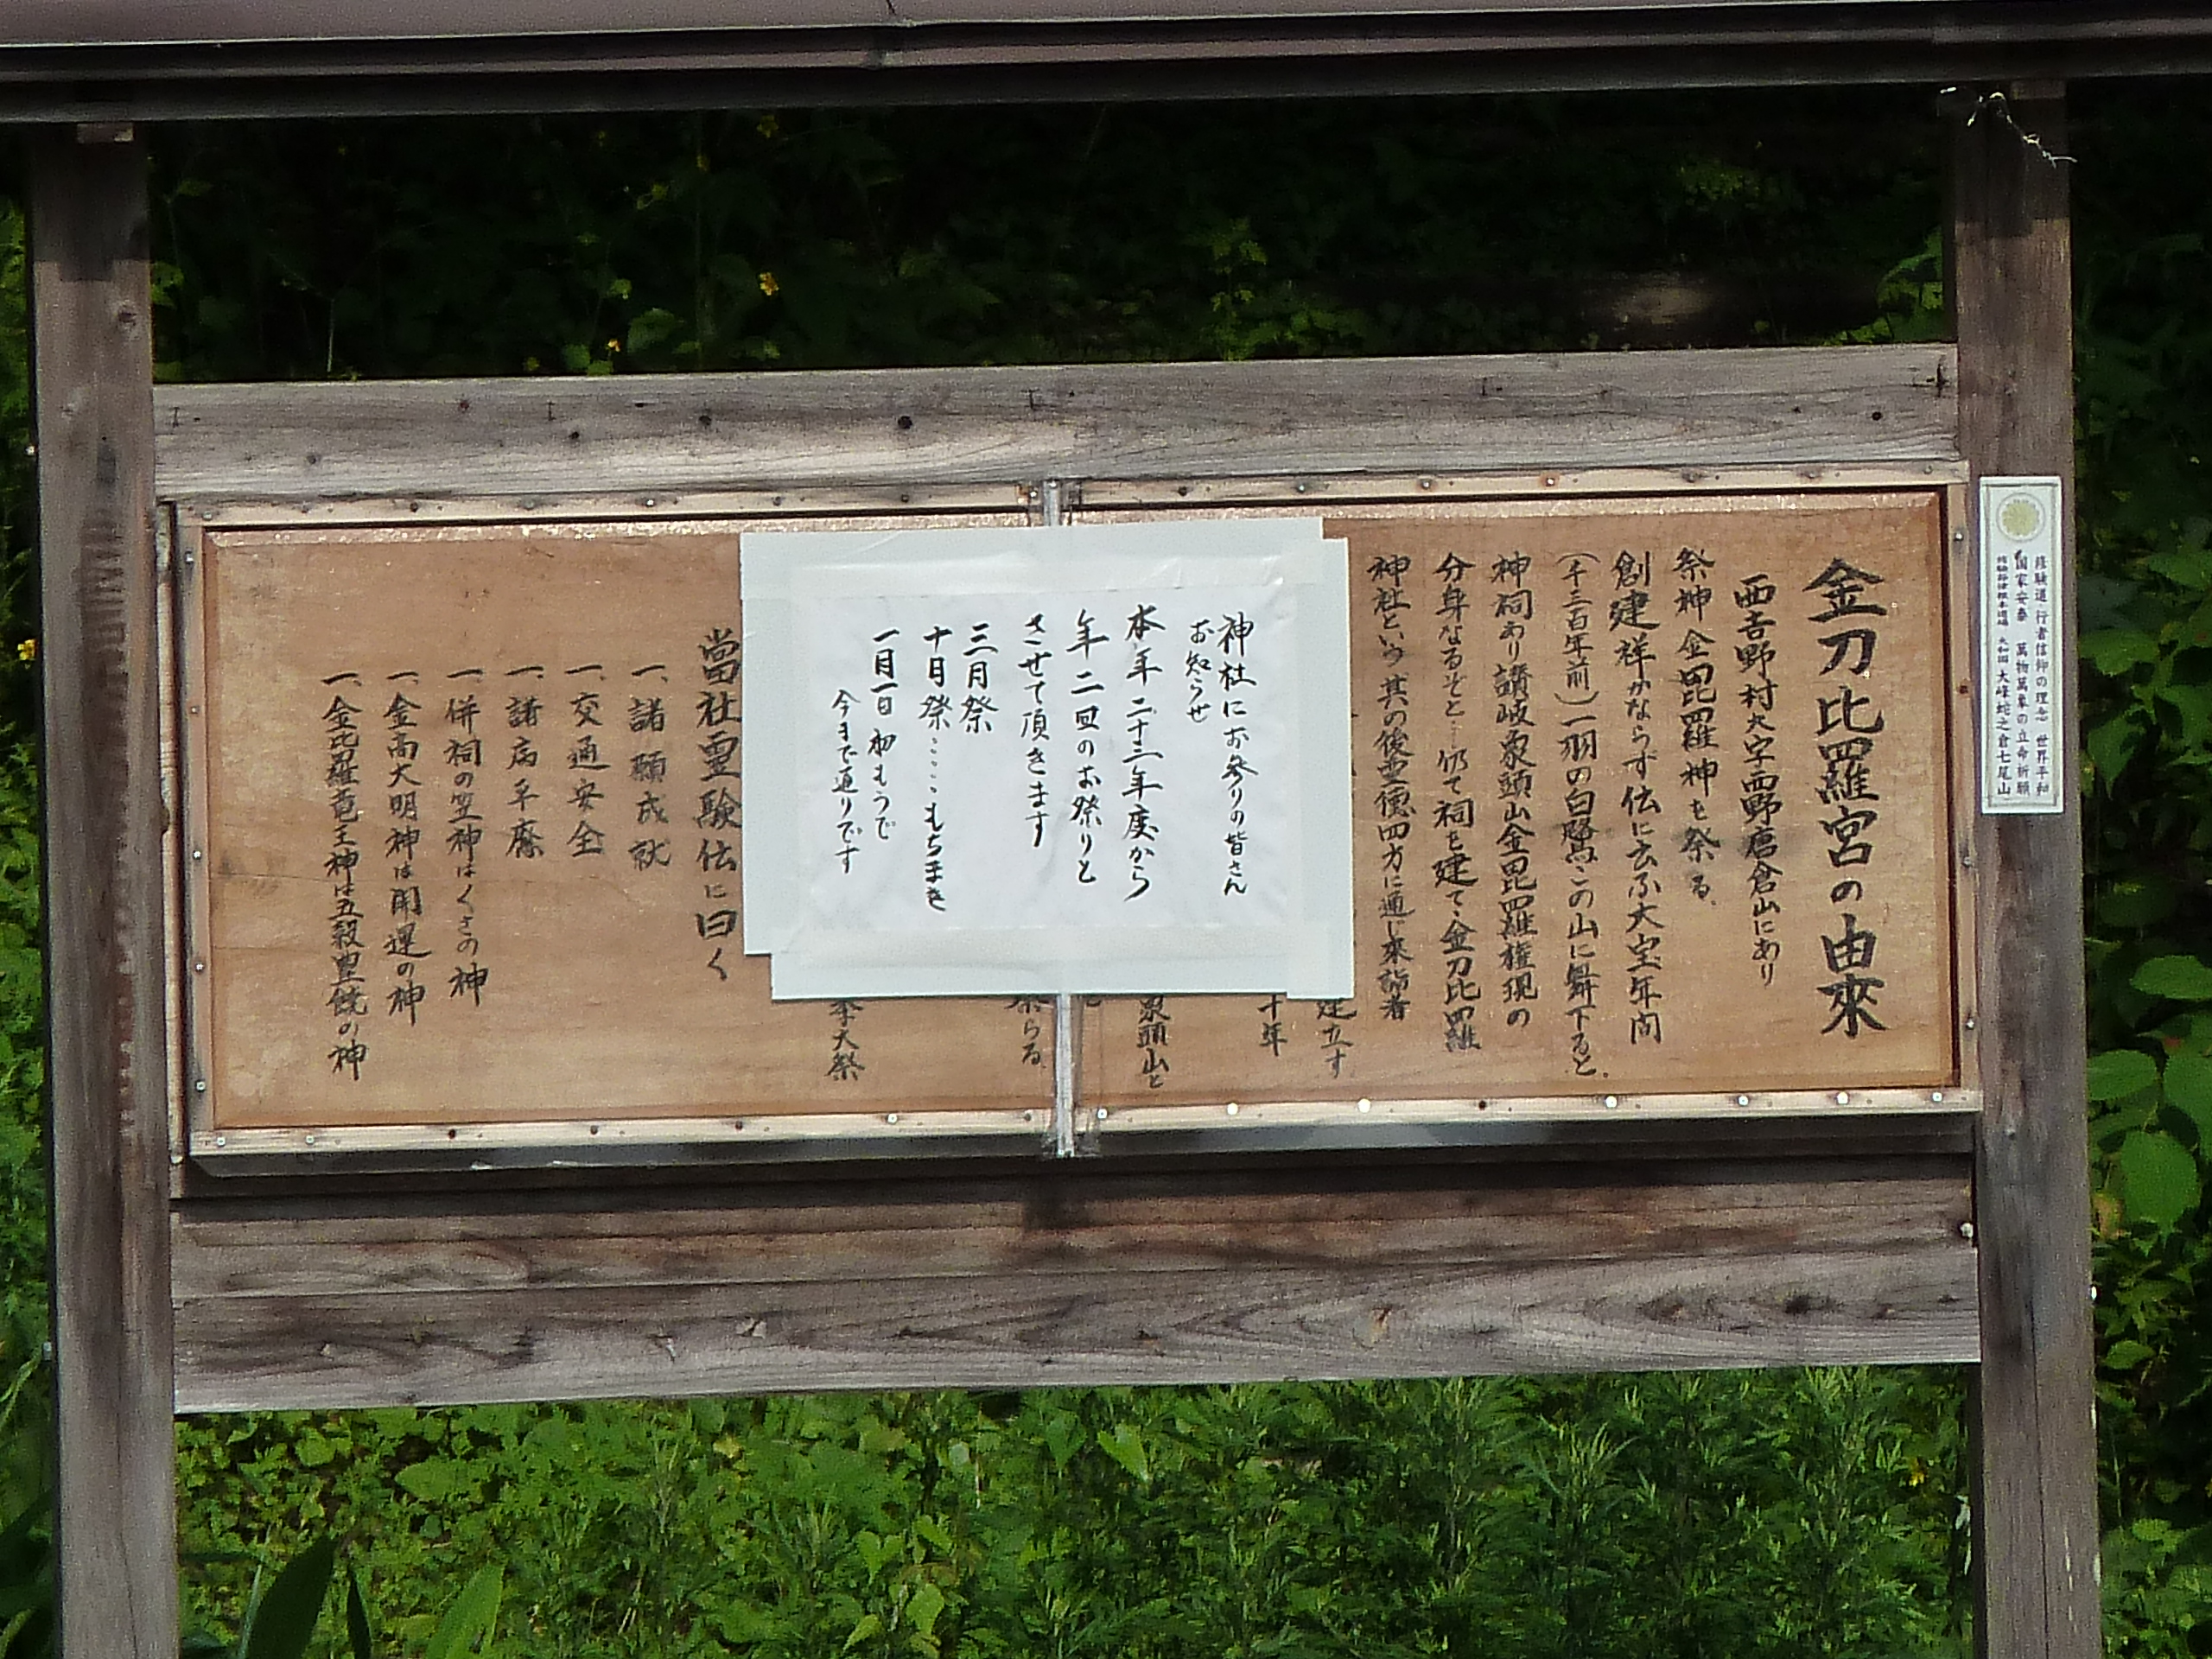 金刀比羅宮の由來
西吉野村大字西野唐倉山にあり
祭神 金毘羅神を祭る
創建祥かならず伝に云ふ大宝年間
(千三百年前)一羽の白鷺この山に舞下ると
神祠あり讃岐象頭山金毘羅権現の
分身なるぞと‥仍て祠を建て金刀比羅
神社という其の後霊徳四方に通じ來詣者
建立す
十年
象頭山と
祭らる
季大祭
當社霊験伝に曰く
一、諸願成就
一、交通安全
一、諸病平癒
一、併祠の笠神はくさの神
一、金高大明神は開運の神
一、金比羅竜王神は五穀豊饒の神
神社にお参りの皆さん
お知らせ
本年二十三年度から
年二回のお祭りと
させて頂きます
三月祭
十月祭‥‥‥もちまき
一月一日 初もうで
今まで通りです
修験道 行者信仰の理念 世界平和
国家安泰 萬物萬象の立命祈願
大峰蛇之倉七尾山